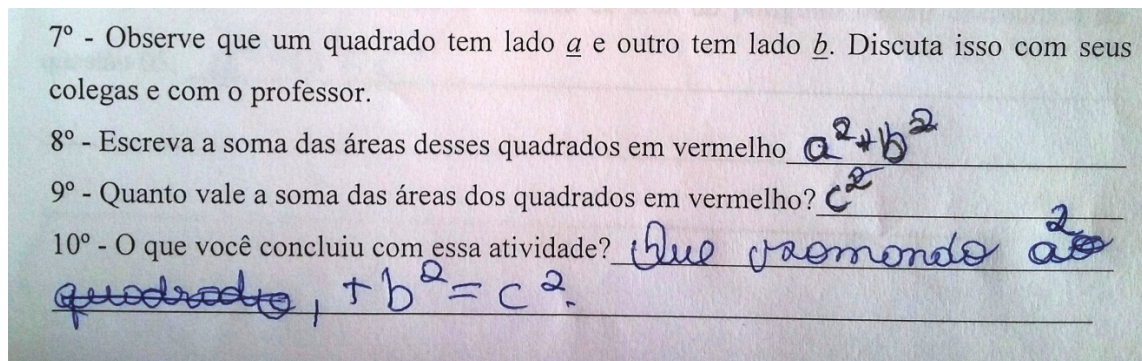 7º - Observe que um quadrado tem lado a e outro tem lado b. Discuta isso com seus
colegas e com o professor.
8º - Escreva a soma das áreas desses quadrados em vermelho a²+b²
9º - Quanto vale a soma das áreas dos quadrados em vermelho? c²
10º - O que você concluiu com essa atividade? Que somando a²
quadrado, + b² = c².